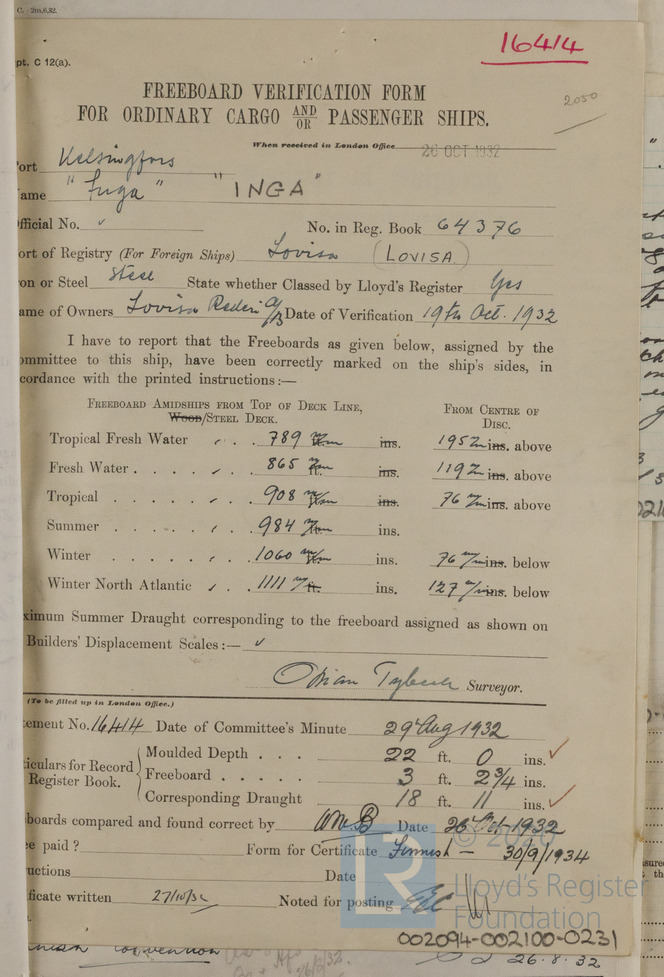 C. 2m,6,32.
16414
pt. C 12(a).
2050
FREEBOARD VERIFICATION FORM
FOR ORDINARY CARGO AND/OR PASSENGER SHIPS.
When received in London Office 26 OCT 1932
ort Helsingfors
ame "Inga" "INGA"
fficial No. ✓ No. in Reg. Book 64376
ort of Registry (For Foreign Ships) Lovisa (LOVISA)
on or Steel Steel State whether Classed by Lloyd's Register Yes
ame of Owners Lovisa Rederi A/B Date of Verification 19th Oct. 1932
I have to report that the Freeboards as given below, assigned by the
ommittee to this ship, have been correctly marked on the ship's sides, in
cordance with the printed instructions:—
FREEBOARD AMIDSHIPS FROM TOP OF DECK LINE, FROM CENTRE OF
WOOD/STEEL DECK. DISC.
Tropical Fresh Water 789 m/m ins. 195 m/m ins. above
Fresh Water 865 m/m ft. ins. 119 m/m ins. above
Tropical 908 m/m ins. 76 m/m ins. above
Summer 984 m/m ins.
Winter 1060 m/m ins. 76 m/m ins. below
Winter North Atlantic 1111 m/m ft. ins. 127 m/m ins. below
ximum Summer Draught corresponding to the freeboard assigned as shown on
Builders' Displacement Scales:— ✓
Surveyor.
(To be filled up in London Office.)
tement No. 16414 Date of Committee's Minute 29 Aug 1932
Moulded Depth . . . 22 ft. 0 ins. ✓
iculars for Record
Register Book.
Freeboard . . . . . 3 ft. 2 3/4 ins.
Corresponding Draught 18 ft. 11 ins. ✓
boards compared and found correct by WMB Date 26 Oct 1932
e paid ? Form for Certificate Finnish — 30/9/1934
uctions Date
ficate written 27/10/32 Noted for posting
© 2020
Lloyd's Register
Foundation
002094-002100-0231
convention
26/8/32.
26.8.32